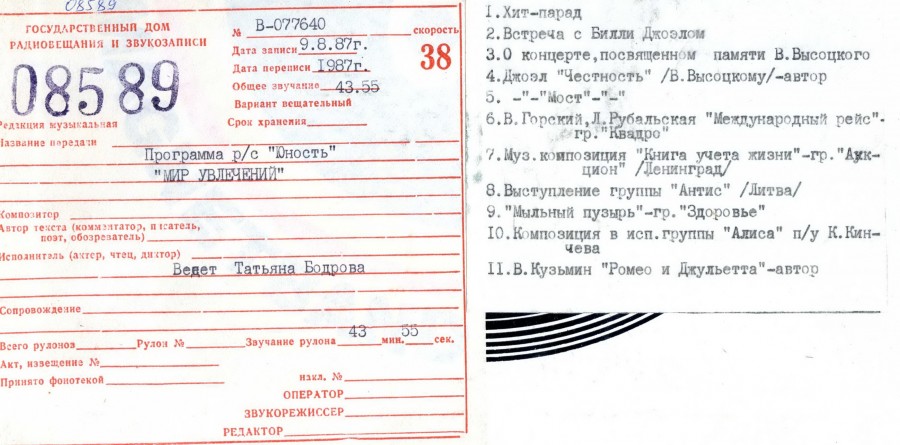 08589
ГОСУДАРСТВЕННЫЙ ДОМ
РАДИОВЕЩАНИЯ И ЗВУКОЗАПИСИ
08589
№ В-077640 скорость
38
Дата записи 9.8.87г.
Дата переписи 1987г.
Общее звучание 43.55
Вариант вещательный
Срок хранения
Редакция музыкальная
Название передачи
Программа р/с "Юность"
"МИР УВЛЕЧЕНИЙ"
Композитор
Автор текста (комментатор, писатель,
поэт, обозреватель)
Исполнитель (актер, чтец, диктор)
Ведет Татьяна Бодрова
Сопровождение
Всего рулонов Рулон № Звучание рулона 43 мин. 55 сек.
Акт, извещение №
Принято фонотекой накл. №
ОПЕРАТОР
ЗВУКОРЕЖИССЕР
РЕДАКТОР
I.Хит-парад
2.Встреча с Билли Джоэлом
3.О концерте,посвященном памяти В.Высоцкого
4.Джоэл "Честность" /В.Высоцкому/-автор
5. -"-"Мост"-"-"
6.В.Горский,Л.Рубальская "Международный рейс"-
гр."Квадро"
7.Муз.композиция "Книга учета жизни"-гр."Аук-
цион" /Ленинград/
8.Выступление группы "Антис" /Литва/
9."Мыльный пузырь"-гр."Здоровье"
I0.Композиция в исп.группы "Алиса" п/у К.Кин-
чева
II.В.Кузьмин "Ромео и Джульетта"-автор